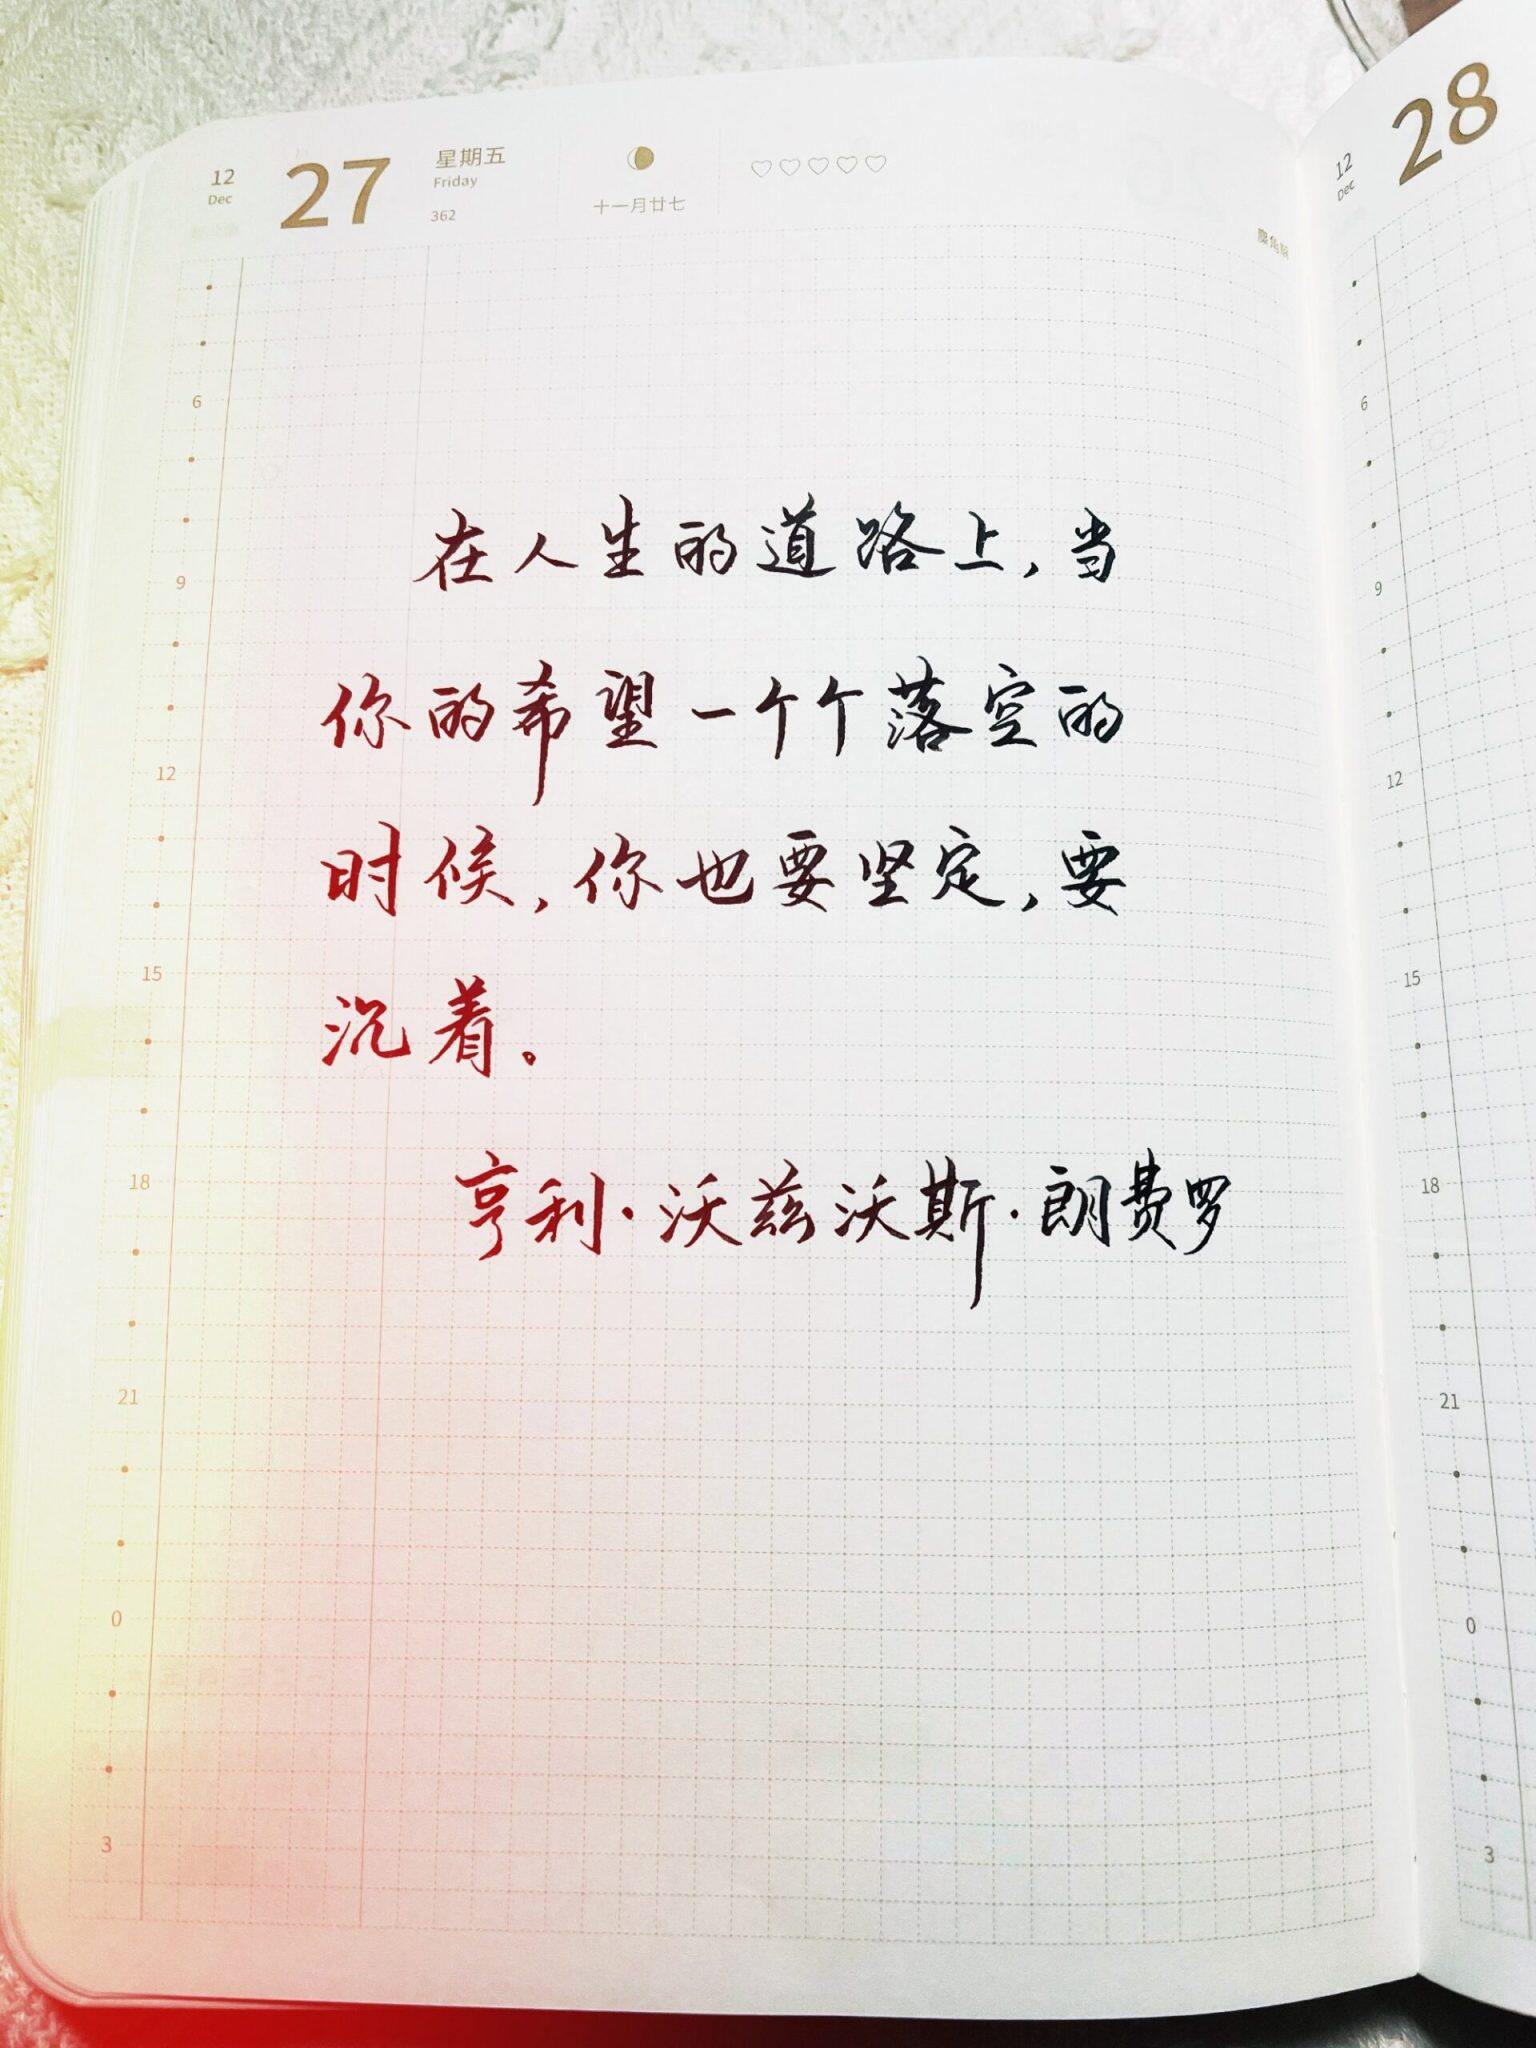 12
Dec
27
星期五
Friday
362
十一月廿七
6
9
12
15
18
21
0
3
在人生的道路上,当
你的希望一个个落空的
时候,你也要坚定,要
沉着。
亨利·沃兹沃斯·朗费罗
12
Dec
28
6
9
12
15
18
21
0
3